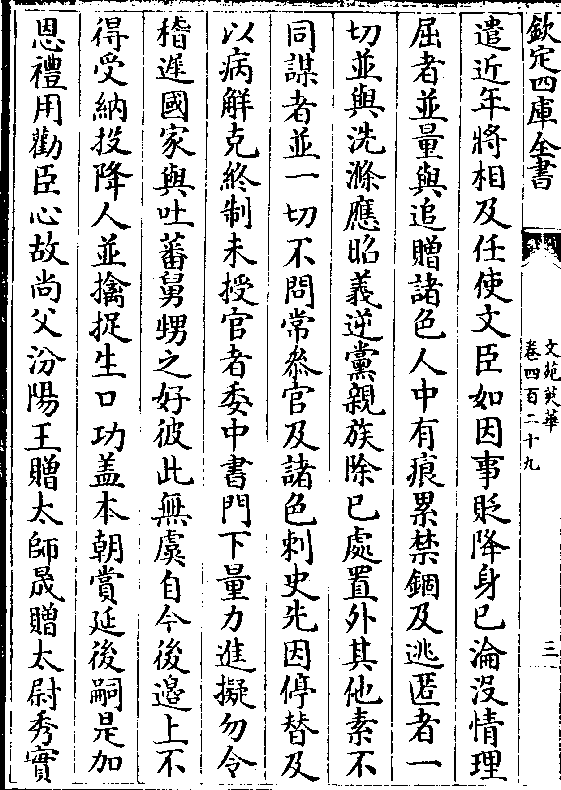 欽定四庫全書
文苑英華
卷四百二十九
三
遣近年將相及任使文臣如因事貶降身已淪沒情理
屈者並量與追贈諸色人中有痕累禁錮及逃匿者一
切並與洗滌應昭義逆黨親族除已處置外其他素不
同謀者並一切不問常叅官及諸色刺史先因停替及
以病解克終制未授官者委中書門下量力進擬勿令
稽遲國家與吐蕃舅甥之好彼此無虞自今後邊上不
得受納投降人並擒捉生口功盖本朝賞延後嗣是加
恩禮用勸臣心故尚父汾陽王贈太師晟贈太尉秀實